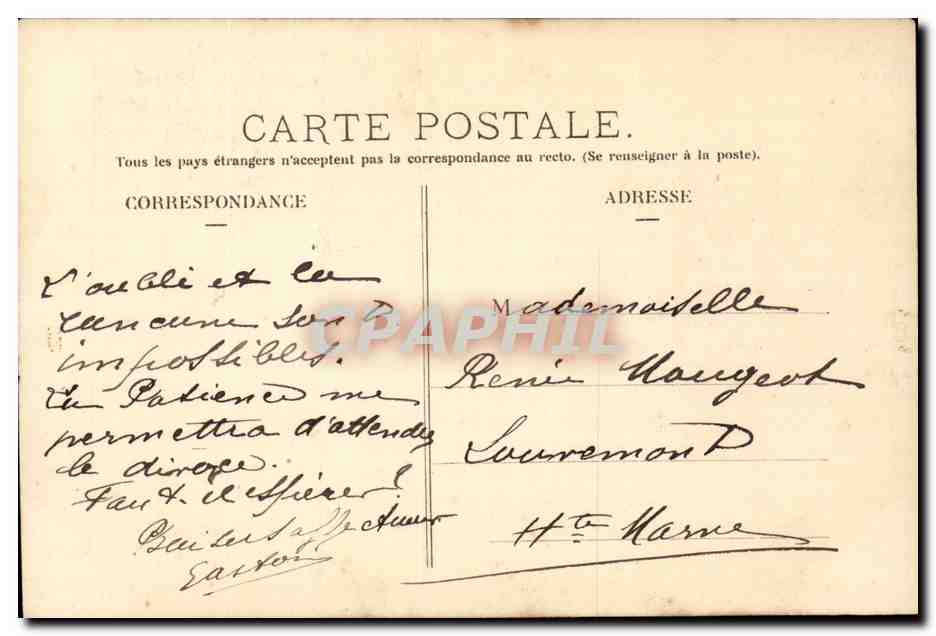 CARTE POSTALE.
Tous les pays étrangers n'acceptent pas la correspondance au recto. (Se renseigner à la poste).
CORRESPONDANCE
L'oubli et la
rancune sont
impossibles.
La Patience me
permettra d'attendre
le divorce.
Faut-il espérer?
Baisers affectueux
Gaston
ADRESSE
Mademoiselle
Renée Mougeot
Louvemont
Hte Marne
CPAPHIL